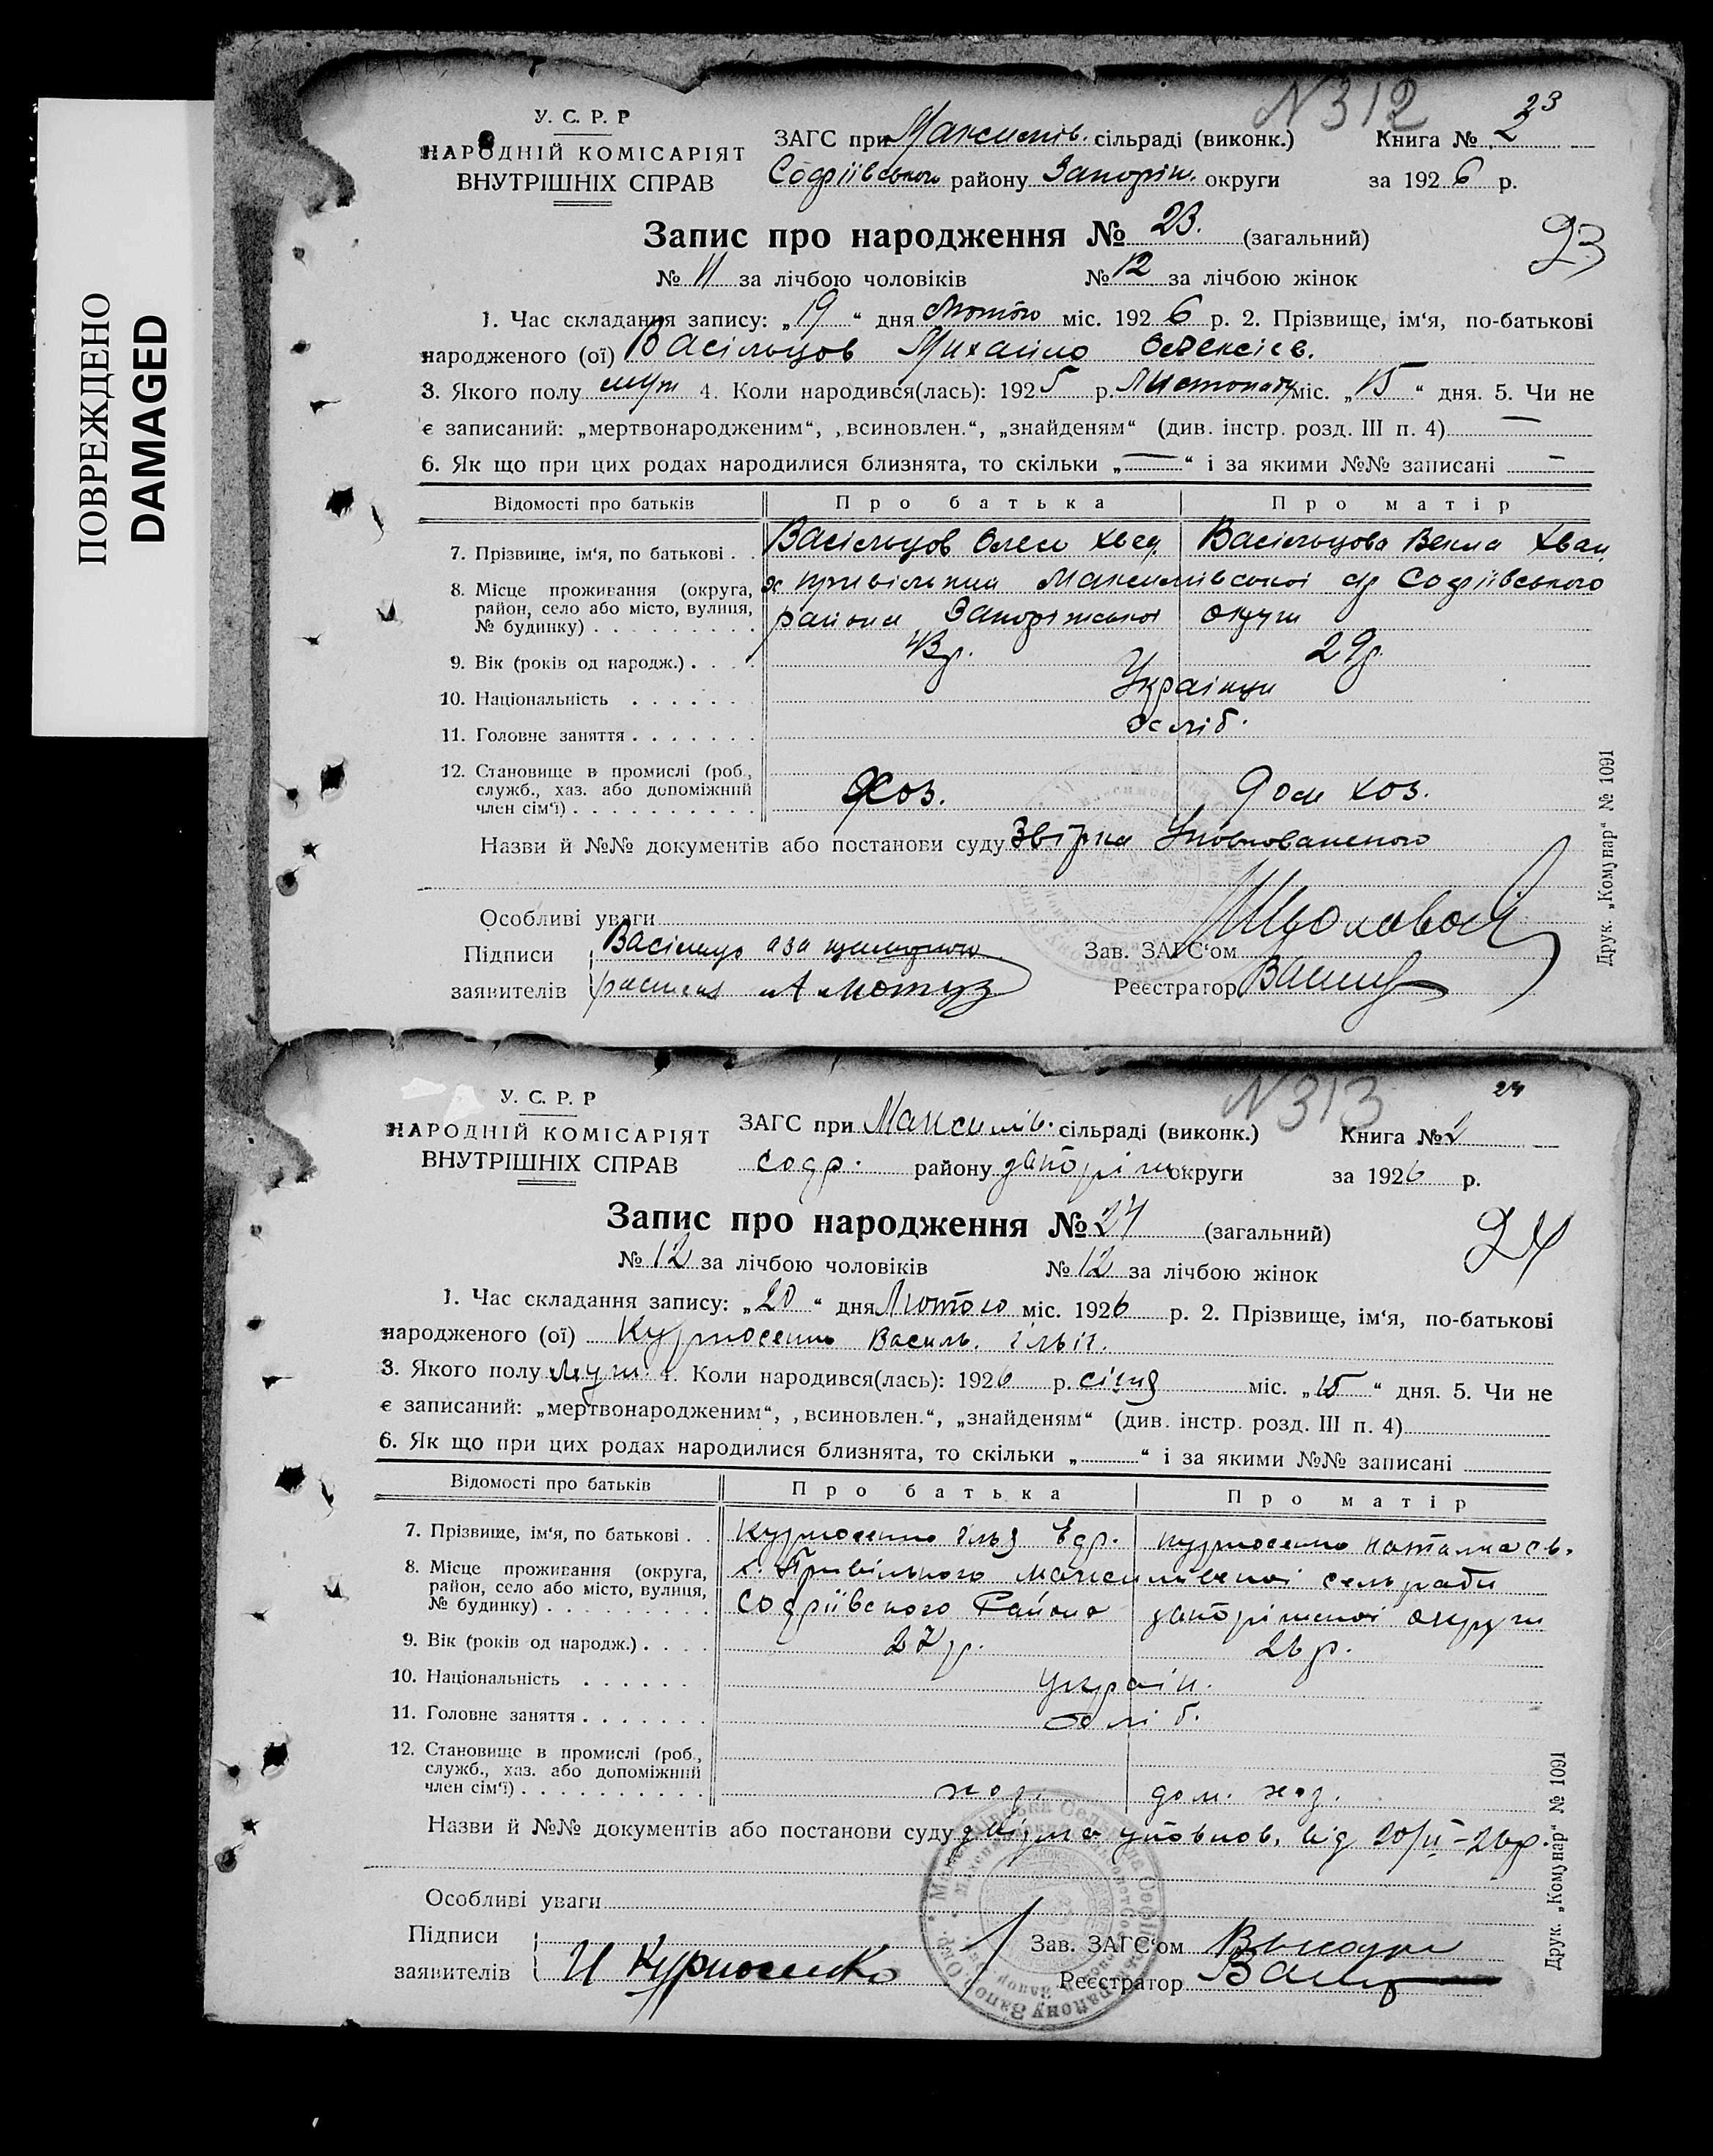 ПОВРЕЖДЕНО
DAMAGED
N 312
23
У. С. Р. Р
НАРОДНІЙ КОМІСАРІЯТ
ВНУТРІШНІХ СПРАВ
ЗАГС при Максимів. сільраді (виконк.) Книга № 2
Софіївського району Запоріж. округи за 1926 р.
Запис про народження № 23. (загальний)
23
№ 11 за лічбою чоловіків № 12 за лічбою жінок
1. Час складання запису: „19“ дня Лютого міс. 1926 р. 2. Прізвище, ім‘я, по-батькові
народженого (ої) Васільцов Михайло Олексієв.
3. Якого полу муж 4. Коли народився(лась): 1925 р. Листопаду міс. „15“ дня. 5. Чи не
є записаний: „мертвонародженим“, „всиновлен.“, „знайденям“ (див. інстр. розд. III п. 4) —
6. Як що при цих родах народилися близнята, то скільки „—“ і за якими №№ записані —
Відомості про батьків Про батька Про матір
7. Прізвище, ім‘я, по батькові . . Васільцов Олексі Хвед. Васільцова Векла Хван.
8. Місце проживання (округа, район, село або місто, вулиця, № будинку) . . . . . . . . . х Привільний Максимівської с/р Софіївського
района Запоріжської округи
9. Вік (років од народж.) . . . . 43 р. 29 р.
10. Національність . . . . . . Українці
11. Головне заняття . . . . . . . хліб.
12. Становище в промислі (роб., служб., хаз. або допоміжний член сім‘ї) . . . . . . . . . . хоз. дом хоз.
Назви й №№ документів або постанови суду Звірка Уповноваженого
Особливі уваги
Підписи Васільцо а за
заявителів
Зав. ЗАГС‘ом
Реєстратор
Друк. „Комунар“ № 1091
N 313
24
У. С. Р. Р
НАРОДНІЙ КОМІСАРІЯТ
ВНУТРІШНІХ СПРАВ
ЗАГС при Максимів. сільраді (виконк.) Книга № 2
Соф. району запоріж. округи за 1926 р.
Запис про народження № 24 (загальний)
24
№ 12 за лічбою чоловіків № 12 за лічбою жінок
1. Час складання запису: „20“ дня Лютого міс. 1926 р. 2. Прізвище, ім‘я, по-батькові
народженого (ої) Курносенко Василь. ільїч.
3. Якого полу муж. 4. Коли народився(лась): 1926 р. січня міс. „15“ дня. 5. Чи не
є записаний: „мертвонародженим“, „всиновлен.“, „знайденям“ (див. інстр. розд. III п. 4)
6. Як що при цих родах народилися близнята, то скільки „ “ і за якими №№ записані
Відомості про батьків Про батька Про матір
7. Прізвище, ім‘я, по батькові . . Курносенко ілья Єфр. курносенко наталка св.
8. Місце проживання (округа, район, село або місто, вулиця, № будинку) . . . . . . . . . х. Привільного максимівської сельради
Софіївского Района запоріжскої округи
9. Вік (років од народж.) . . . . 27 р. 26 р.
10. Національність . . . . . . україн.
11. Головне заняття . . . . . . . хліб.
12. Становище в промислі (роб., служб., хаз. або допоміжний член сім‘ї) . . . . . . . . . . хоз. дом. хоз.
Назви й №№ документів або постанови суду звірка уповнов. від 20/II-26 р.
Особливі уваги
Підписи
заявителів И Курносенко
Зав. ЗАГС‘ом
Реєстратор
Друк. „Комунар“ № 1091